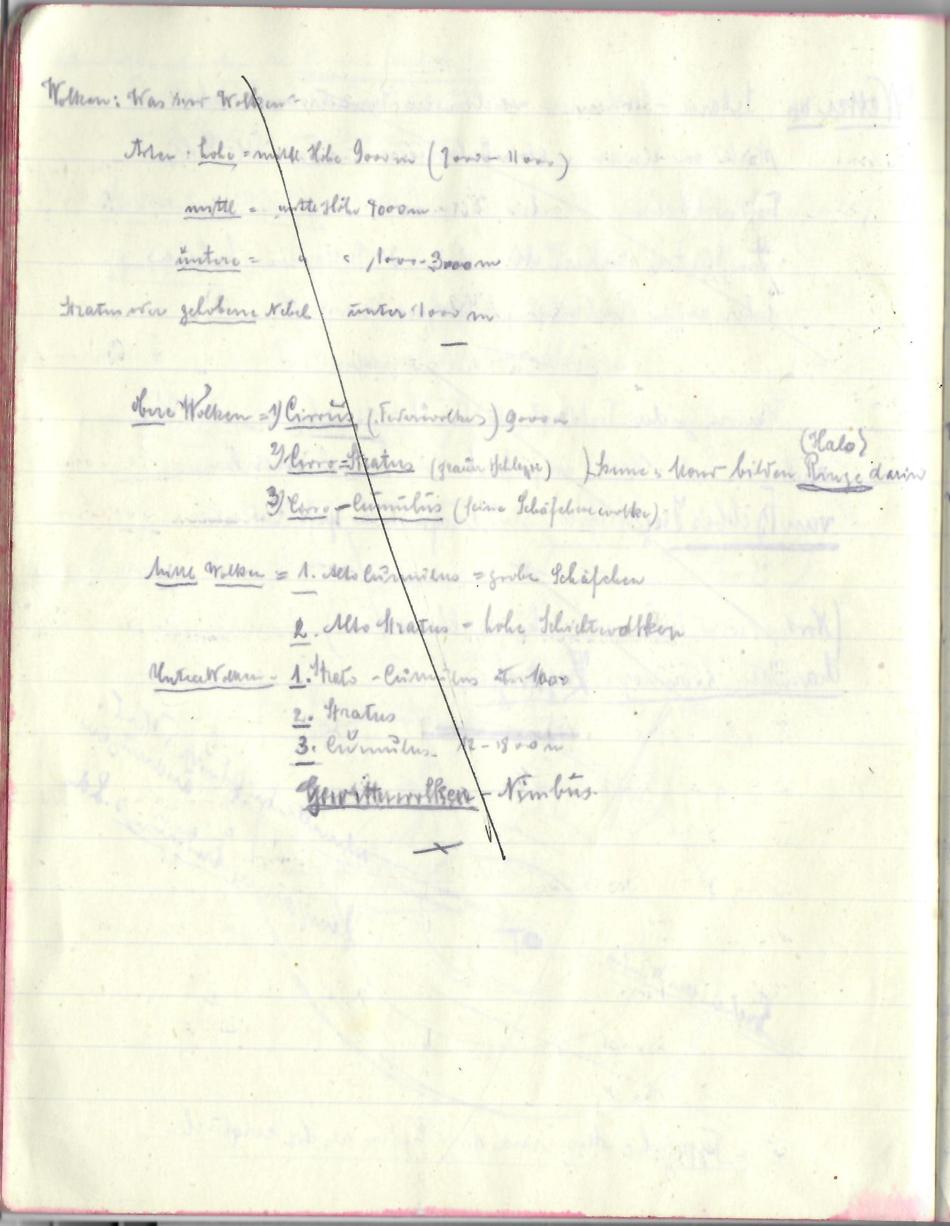 Wolken: Was sind Wolken
Arten · hohe = mittl Höhe 9000 m (7000 - 11000)
mittl = mittl Höhe 4000 m
untere = " " 1000 - 3000 m
Stratus oder gehobene Nebel unter 1000 m
obere Wolken = 1) Cirrus (Federwolken) 9000 m
(Halo)
2) Cirro = Stratus (grauer Schleier) } Sonne u. Mond bilden Ringe darin
3) Cirro - Cumulus (feine Schäfchenwolke)
Mittl Wolken = 1. Alto Cumulus = grobe Schäfchen
2. Alto Stratus - hohe Schichtwolken
Untere Wolken - 1. Strato - Cumulus unter 1000
2. Stratus
3. Cumulus - 12 - 1800 m
Gewitterwolken - Nimbus